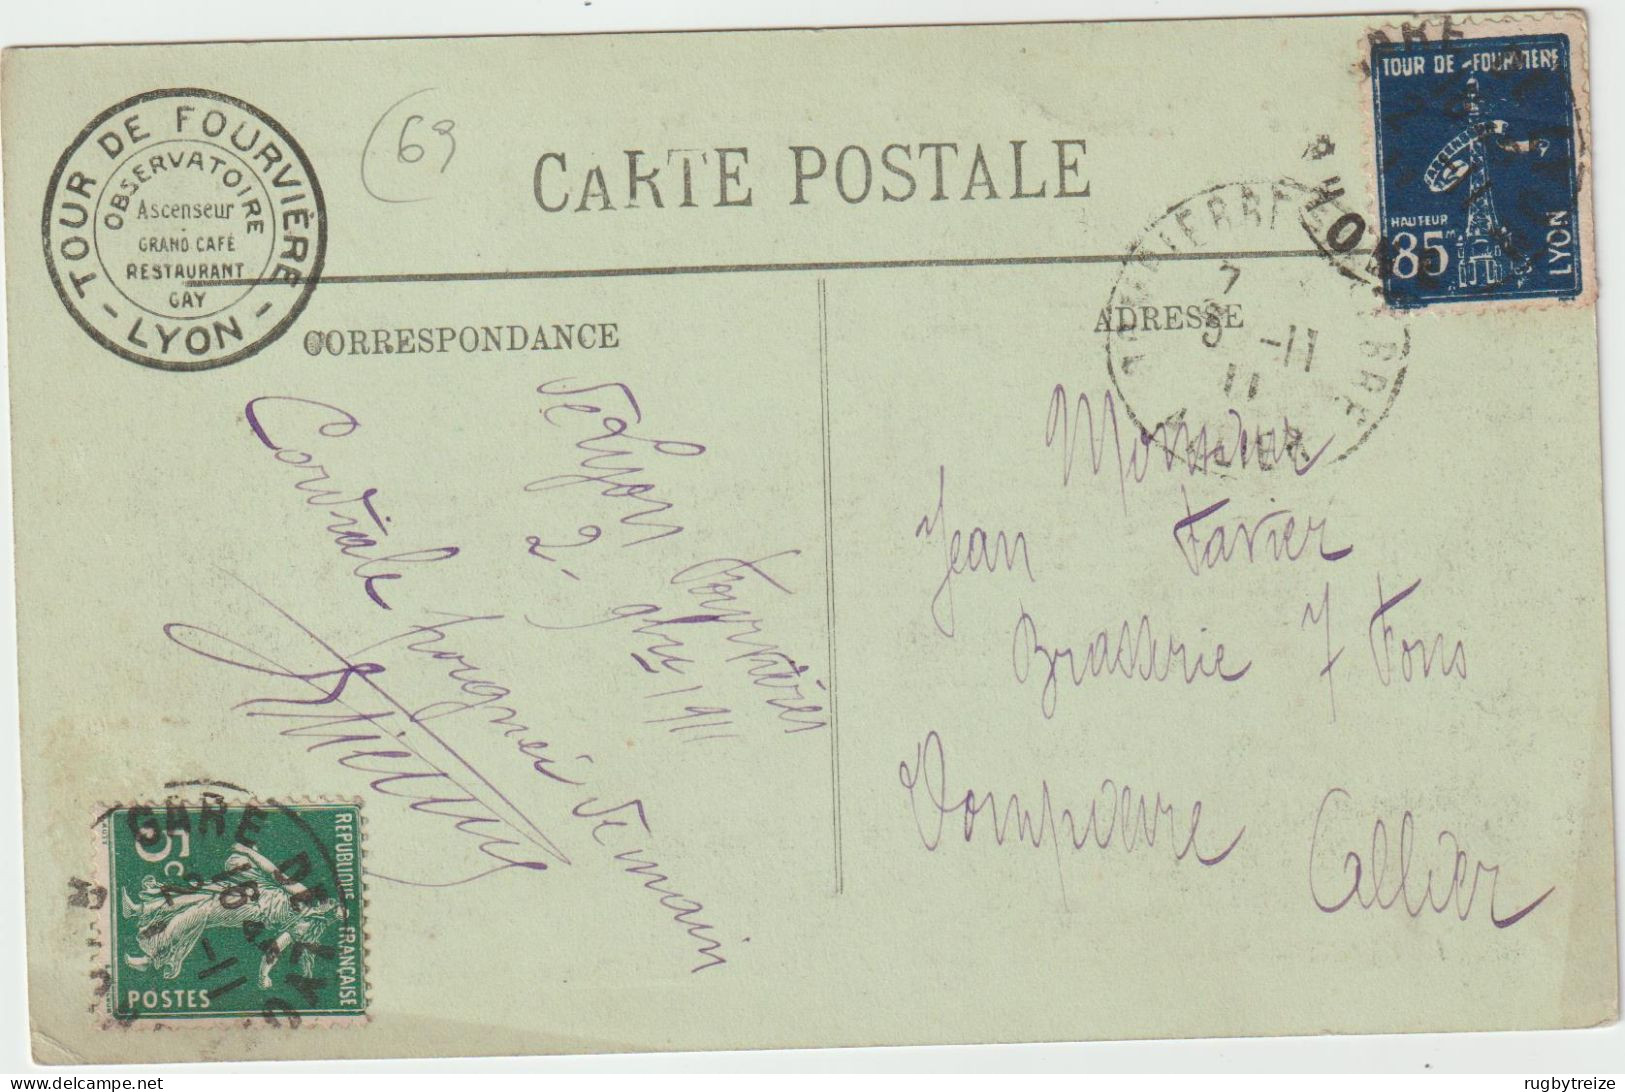 TOUR DE FOURVIÈRE
OBSERVATOIRE
Ascenseur
GRAND CAFÉ
RESTAURANT
GAY
- LYON -
69
CARTE POSTALE
TOUR DE FOURVIERE
HAUTEUR
85m
LYON
CORRESPONDANCE
ADRESSE
7
9 -11
11
ALLIER
De Lyon Fourvières
2- 9bre 1911
Cordiale poignée de main
Monsieur
Jean Favier
Brasserie 7 Fons
Dompierre
Allier
REPUBLIQUE FRANÇAISE
5c
POSTES
GARE DE
16
2 -11
rugbytreize